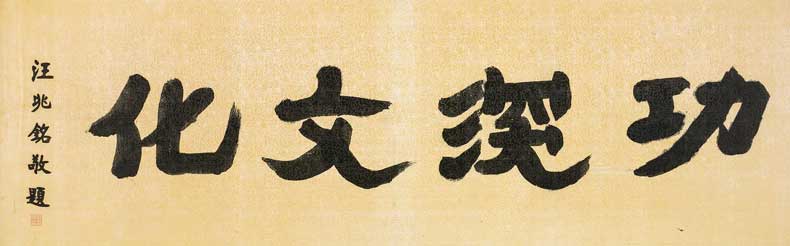 功深文化
汪兆銘敬題